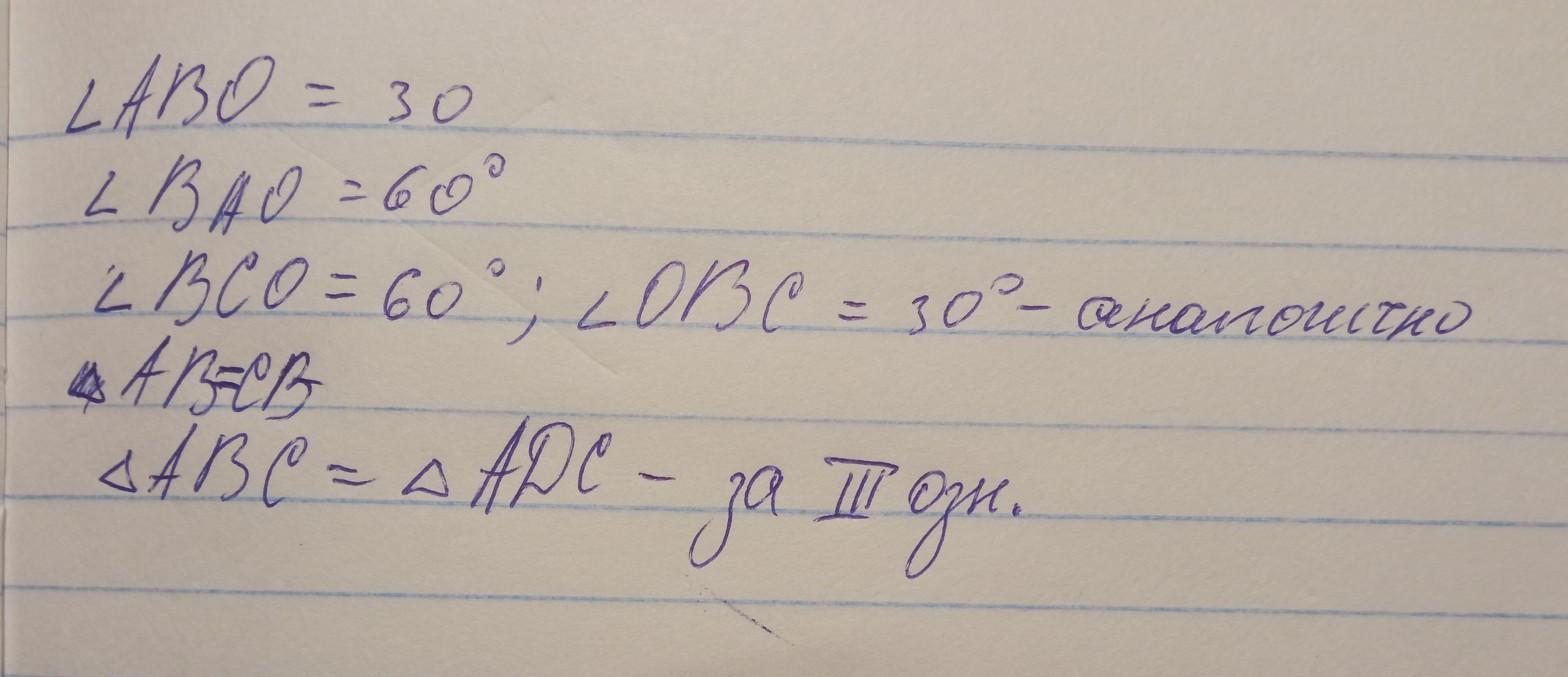 ∠ABO = 30
∠BAO = 60°
∠BCO = 60°; ∠OBC = 30° - аналогічно
AB=CB
△ABC = △ADC - за III озн.